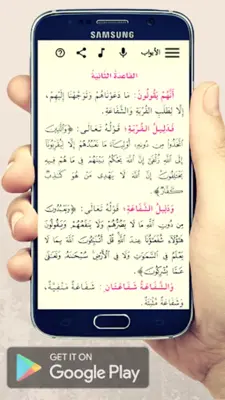 SAMSUNG
الأبواب
القاعدة الثانية
أَنَّهُمْ يَقُولُونَ: مَا دَعَوْنَاهُمْ وَتَوَجَّهْنَا إِلَيْهِمْ،
إِلَّا لِطَلَبِ القُرْبَةِ وَالشَّفَاعَةِ.
فَدَلِيلُ القُرْبَةِ: قَوْلُهُ تَعَالَى: ﴿وَالَّذِينَ
اتَّخَذُوا مِن دُونِهِ أَوْلِيَاءَ مَا نَعْبُدُهُمْ إِلَّا لِيُقَرِّبُونَا
إِلَى اللَّهِ زُلْفَى إِنَّ اللَّهَ يَحْكُمُ بَيْنَهُمْ فِي مَا هُمْ فِيهِ
يَخْتَلِفُونَ إِنَّ اللَّهَ لَا يَهْدِي مَنْ هُوَ كَاذِبٌ
كَفَّارٌ﴾.
وَدَلِيلُ الشَّفَاعَةِ: قَوْلُهُ تَعَالَى: ﴿وَيَعْبُدُونَ
مِن دُونِ اللَّهِ مَا لَا يَضُرُّهُمْ وَلَا يَنفَعُهُمْ وَيَقُولُونَ
هَؤُلَاءِ شُفَعَاؤُنَا عِندَ اللَّهِ قُلْ أَتُنَبِّئُونَ اللَّهَ بِمَا لَا
يَعْلَمُ فِي السَّمَوَاتِ وَلَا فِي الْأَرْضِ سُبْحَانَهُ وَتَعَالَى
عَمَّا يُشْرِكُونَ﴾.
وَالشَّفَاعَةُ شَفَاعَتَانِ: شَفَاعَةٌ مَنْفِيَّةٌ،
وَشَفَاعَةٌ مُثْبَتَةٌ.
GET IT ON
Google Play